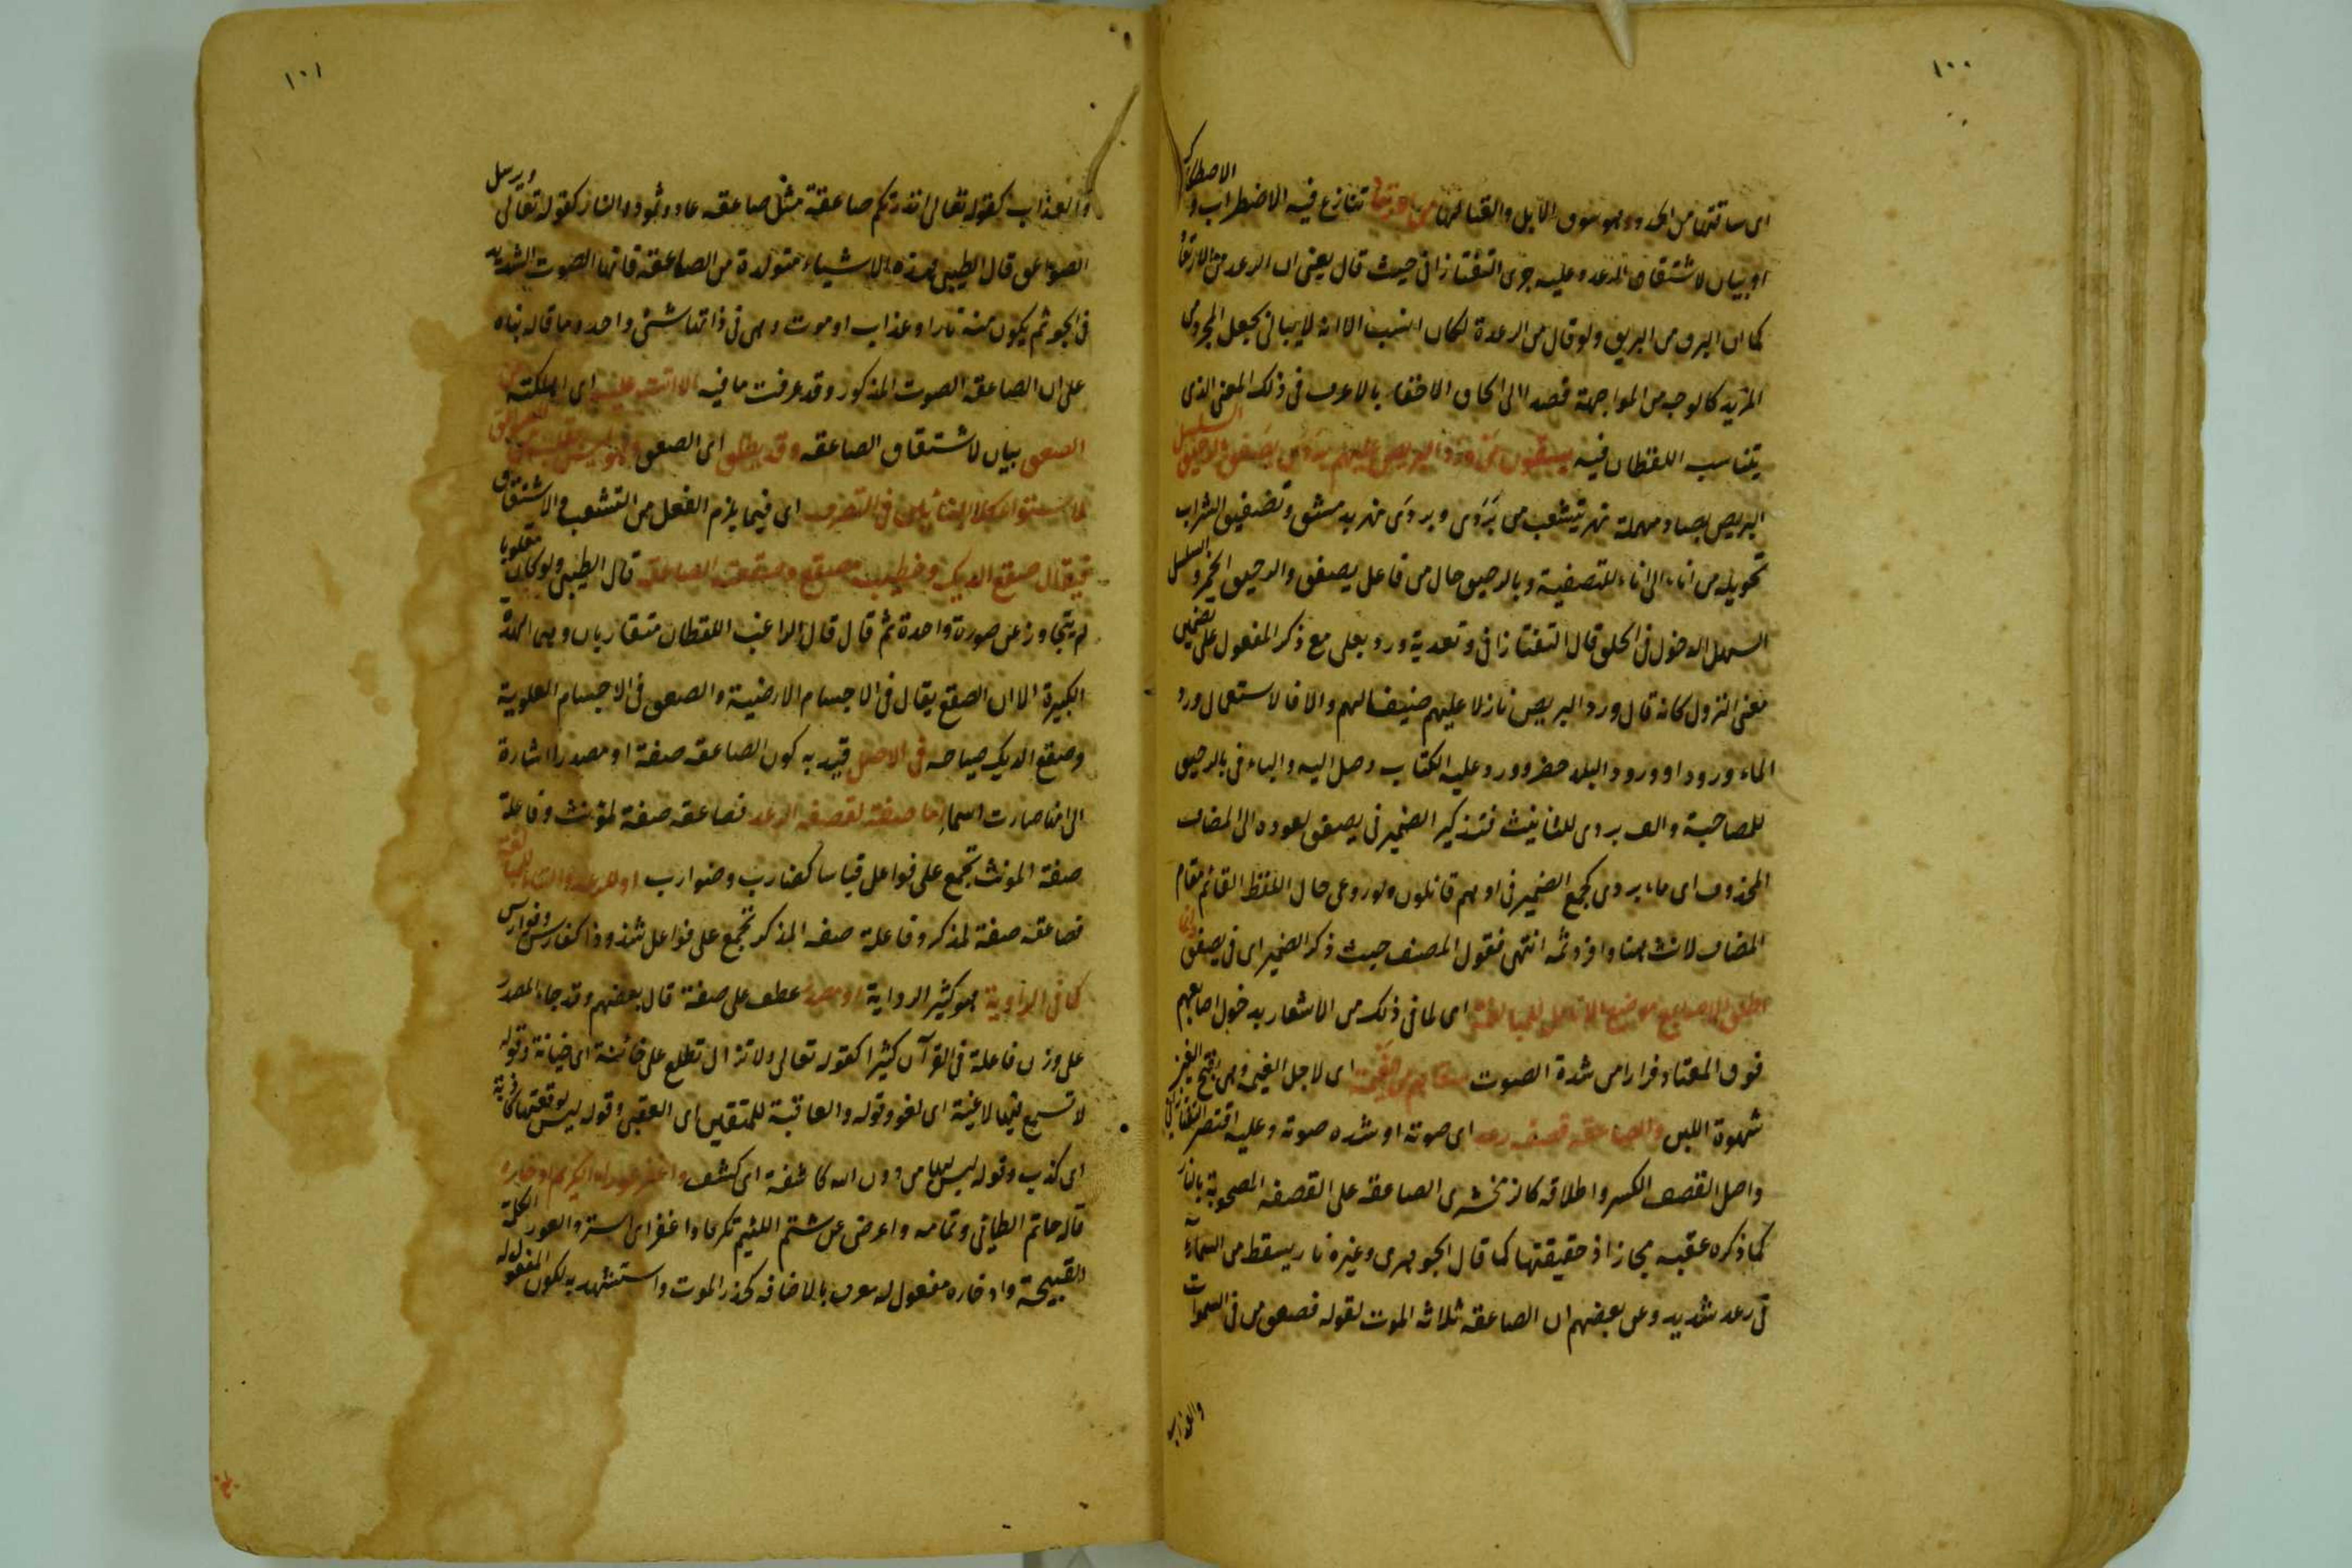 ١٠٠
اى ساقتها من الحدو وهو سوق الابل والغنا لها من الارتعاد تنازع فيه الاضطراب والاصطكاك
او بيان لاشتقاق الرعد وعليه جرى التفتازانى حيث قال يعنى ان الرعد من الارتعاد
كما ان البرق من البريق ولو قال من الرعدة لكان انسب الا انه لا يبالى بجعل المجرد من
المزيد كالوجه من المواجهة قصدا الى الحاق الاخفى بالاعرف فى ذلك المعنى الذى
يتناسب اللفظان فيه يسقون من ورد البريص عليهم بردى يصفق بالرحيق السلسل
البريص بصاد مهملة نهر يتشعب من بردى وبردى نهر بدمشق وتصفيق الشراب
تحويله من اناء الى اناء للتصفية وبالرحيق حال من فاعل يصفق والرحيق الخمر والسلسل
السهل الدخول فى الحلق قال التفتازانى وتعدية ورد بعلى مع ذكر المفعول على تضمين
معنى النزول كانه قال ورد البريص نازلا عليهم ضيفا لهم والا فالاستعمال ورد
الماء ورودا وورود البلد حضر وورد عليه الكتاب وصل اليه والباء فى بالرحيق
للمصاحبة والف بردى للتانيث فتذكير الضمير فى يصفق لعوده الى المضاف
المحذوف اى ماء بردى كجمع الضمير فى اوهم قائلون ولو روعى حال اللفظ القائم مقام
المضاف لانث هنا وافرد ثمه انتهى فقول المصنف حيث ذكر الضمير اى فى يصفق وانما
اطلق الاصابع موضع الانامل للمبالغة اى لما فى ذلك من الاشعار بدخول اصابعهم
فوق المعتاد فرارا من شدة الصوت سقاهم من العيمة اى لاجل العيمة وهى بفتح العين
شهوة اللبن والصاعقة قصفة رعد اى صوته او شده صوته وعليه اقتصر التفتازانى
واصل القصف الكسر واطلاقه كالزمخشرى الصاعقة على القصفة المصحوبة بالنار
كما ذكره عقبه مجاز اذ حقيقتها كما قال الجوهرى وغيره نار يسقط من السماء
فى رعد شديد وعن بعضهم ان الصاعقة ثلاثة الموت لقوله فصعق من فى السموات
والعذاب
١٠١
والعذاب كقوله تعالى انذرتكم صاعقة مثل صاعقة عاد وثمود والنار كقوله تعالى ويرسل
الصواعق قال الطيبى هذه الاشياء متولدة من الصاعقة فانها الصوت الشديد
فى الجو ثم يكون منه نار او عذاب او موت وهى فى ذاتها شئ واحد وما قاله بناه
على ان الصاعقة الصوت المذكور وقد عرفت ما فيه الا اتت عليه اى اهلكته من
الصعق بيان لاشتقاق الصاعقة وقد يطلق اى الصعق وهو ليس بقلب من الصواعق
لاستواء كلا البنائين فى التصرف اى فيما يلزم الفعل من التشعب والاشتقاق
فيقال صقع الديك وخطيب مصقع وصقعته الصاعقة قال الطيبى ولو كان مقلوبا
لم يتجاوز عن صورة واحدة ثم قال قال الراغب اللفظان متقاربان وهى الهدة
الكبيرة الا ان الصقع يقال فى الاجسام الارضية والصعق فى الاجسام العلوية
وصقع الديك صياحه فى الاصل قيد به كون الصاعقة صفة او مصدرا اشارة
الى انها صارت اسما اما صفة لقصفة الرعد فصاعقة صفة لمؤنث وفاعلة
صفة المونث تجمع على فواعل قياسا كضارب وضوارب او الرعد والتاء للمبالغة
فصاعقة صفة لمذكر وفاعلة صفة المذكر تجمع على فواعل شذوذا كفارس وفوارس
كما فى الراوية هو كثير الرواية او مصدر عطف على صفة قال بعضهم وقد جاء المصدر
على وزن فاعلة فى القرآن كثيرا كقوله تعالى ولا تزال تطلع على خائنة اى خيانة وقوله
لا تسمع فيها لاغية اى لغو وقوله والعاقبة للمتقين اى العقبى وقوله ليس لوقعتها كاذبة
اى كذب وقوله ليس لها من دون الله كاشفة اى كشف واغفر عوراء الكريم ادخاره
قاله حاتم الطائى وتمامه واعرض عن شتم اللئيم تكرما واغفر اى استر والعوراء الكلمة
القبيحة وادخاره مفعول له معرف بالاضافة كحذر الموت واستشهد به لكون المفعول له